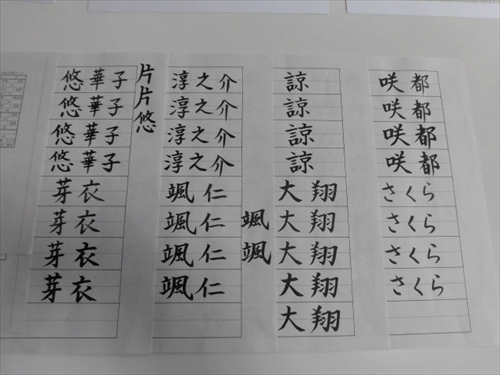 悠華子
悠華子
悠華子
悠華子
芽衣
芽衣
芽衣
芽衣
片片悠
淳之介
淳之介
淳之介
淳之介
颯仁
颯仁
颯仁
颯仁
颯
颯
諒
諒
諒
諒
大翔
大翔
大翔
大翔
大翔
咲都
咲都
咲都
咲都
さくら
さくら
さくら
さくら